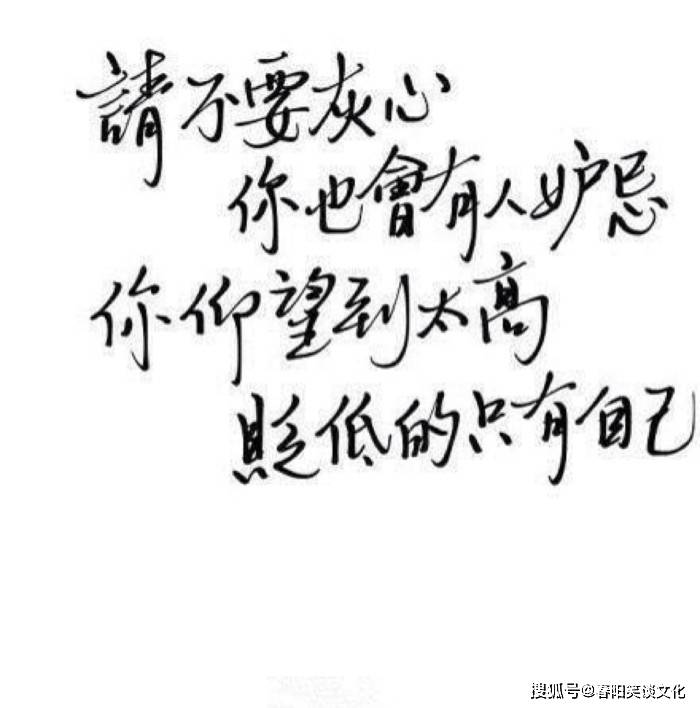 請不要灰心
你也會有人妒忌
你仰望到太高
貶低的只有自己
搜狐号@春阳笑谈文化